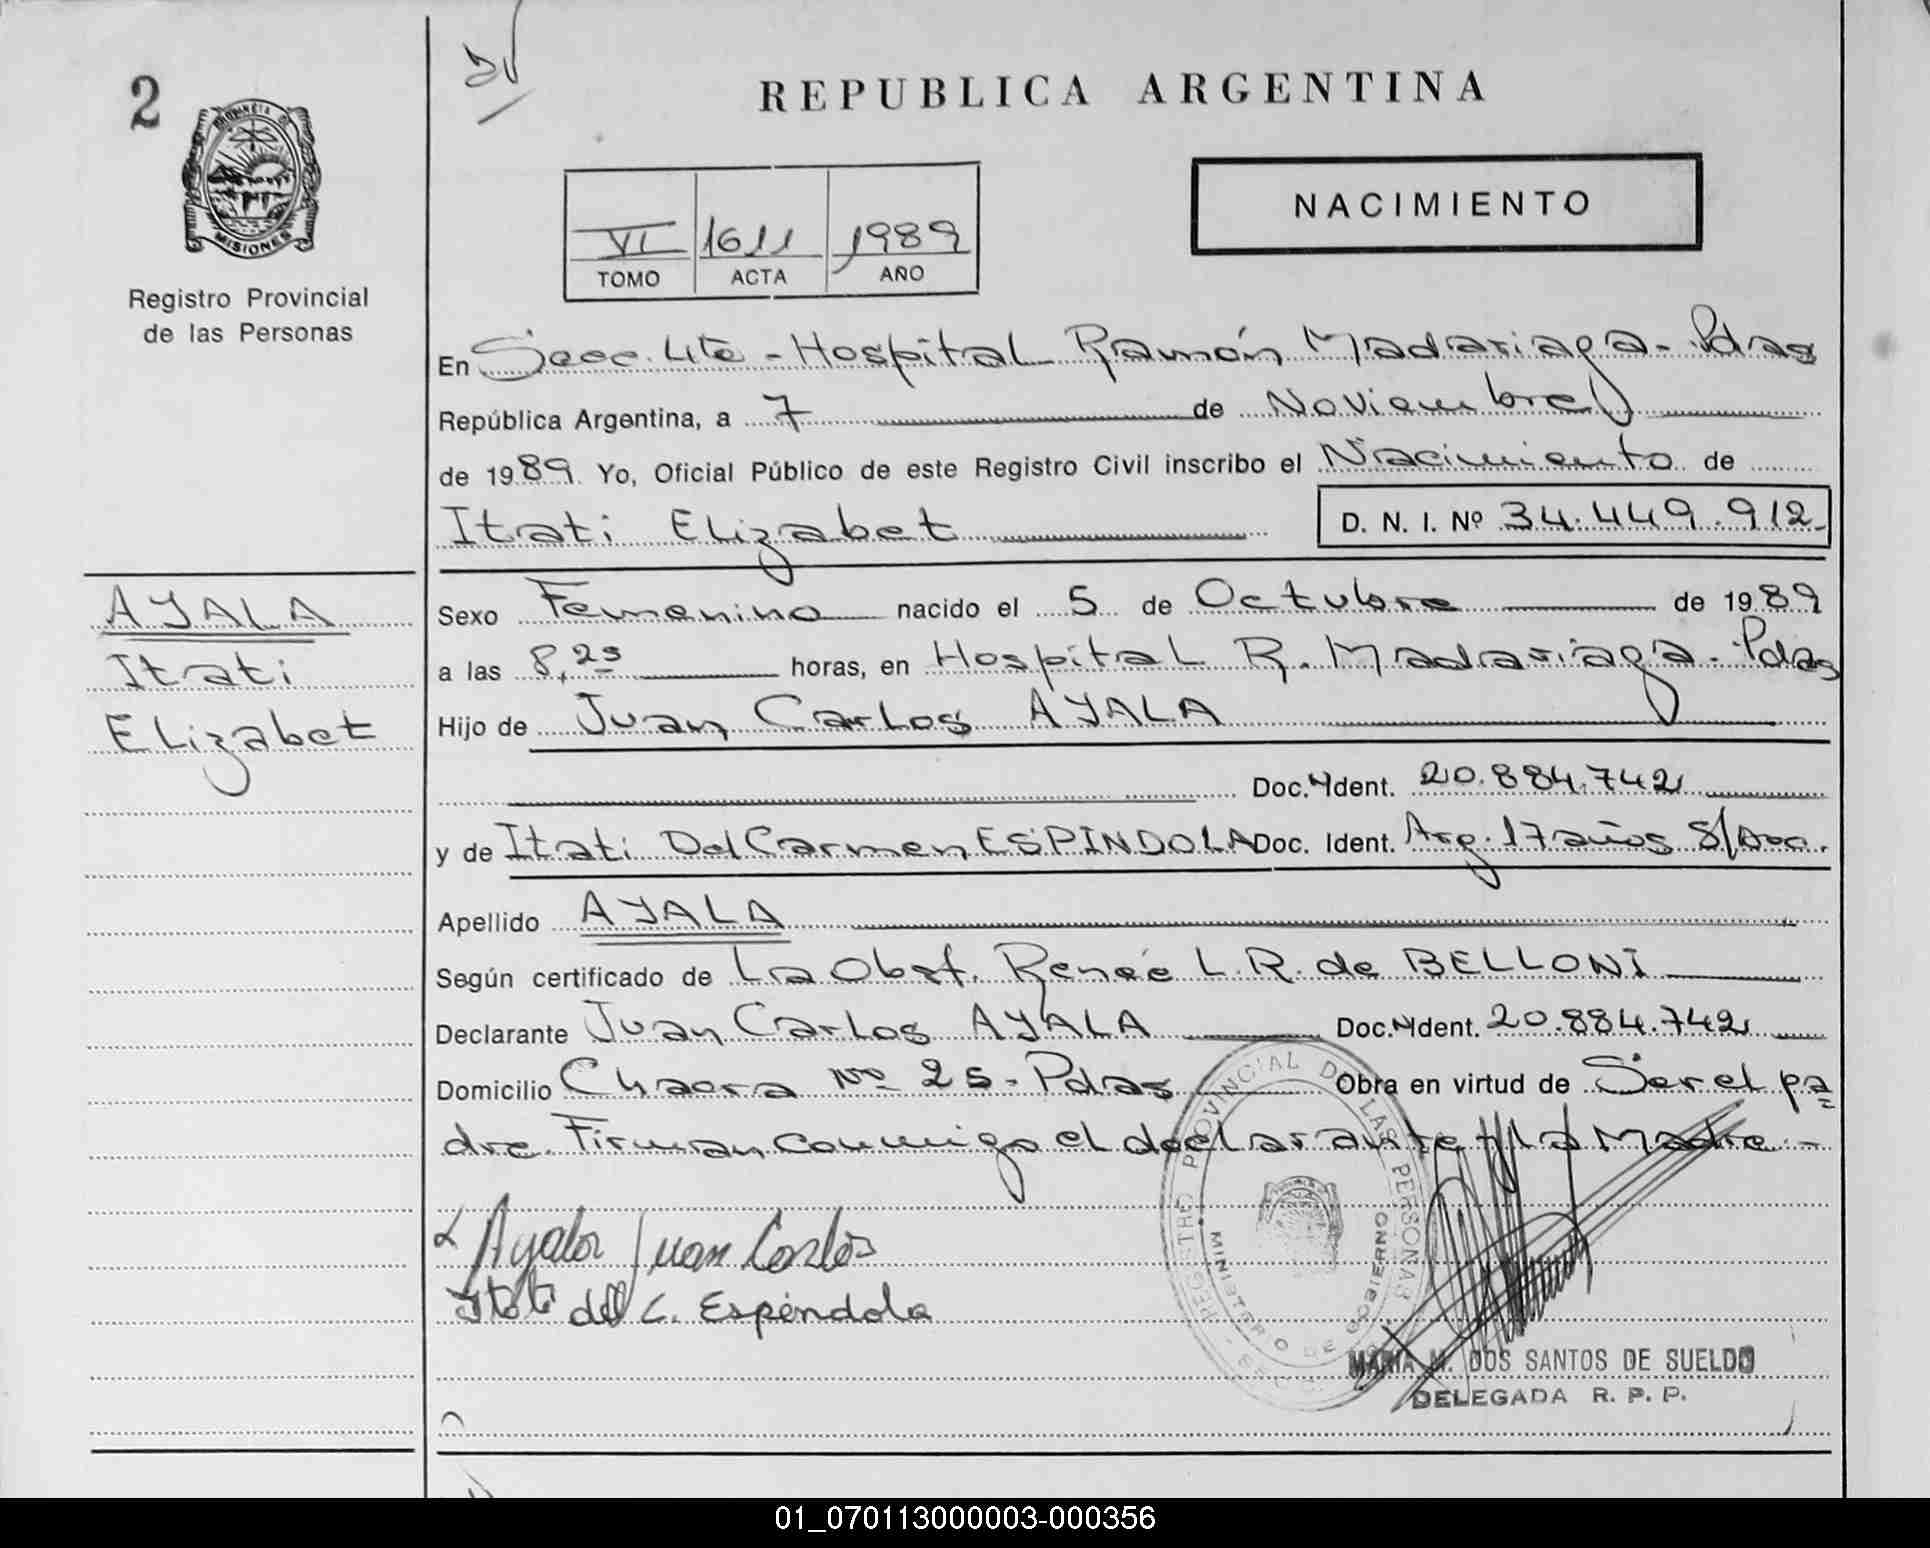 2
REPUBLICA ARGENTINA
PROVINCIA DE
MISIONES
Registro Provincial
de las Personas
VI 1611 1989
TOMO ACTA AÑO
NACIMIENTO
En Secc. 4ta - Hospital Ramón Madariaga - Pdas
República Argentina, a 7 de Noviembre
de 1989 Yo, Oficial Público de este Registro Civil inscribo el Nacimiento de
Itati Elizabet D. N. I. Nº 34.449.912-
AYALA
Itati
Elizabet
Sexo Femenino nacido el 5 de Octubre de 1989
a las 8,25 horas, en Hospital R. Madariaga - Pdas
Hijo de Juan Carlos AYALA
Doc. Ident. 20.884.742
y de Itati Del Carmen ESPINDOLA Doc. Ident. Arg. 17 años S/Doc.
Apellido AYALA
Según certificado de La Obst. Renée L. R. de BELLONI
Declarante Juan Carlos AYALA Doc. Ident. 20.884.742
Domicilio Chacra Nº 25 - Pdas Obra en virtud de Ser el pa=
dre. Firman conmigo el declarante y la Madre -
Ayala Juan Carlos
Itati del C. Espéndola
REGISTRO PROVINCIAL DE LAS PERSONAS
MINISTERIO DE GOBIERNO
MARIA M. DOS SANTOS DE SUELDO
DELEGADA R. P. P.
01_070113000003-000356